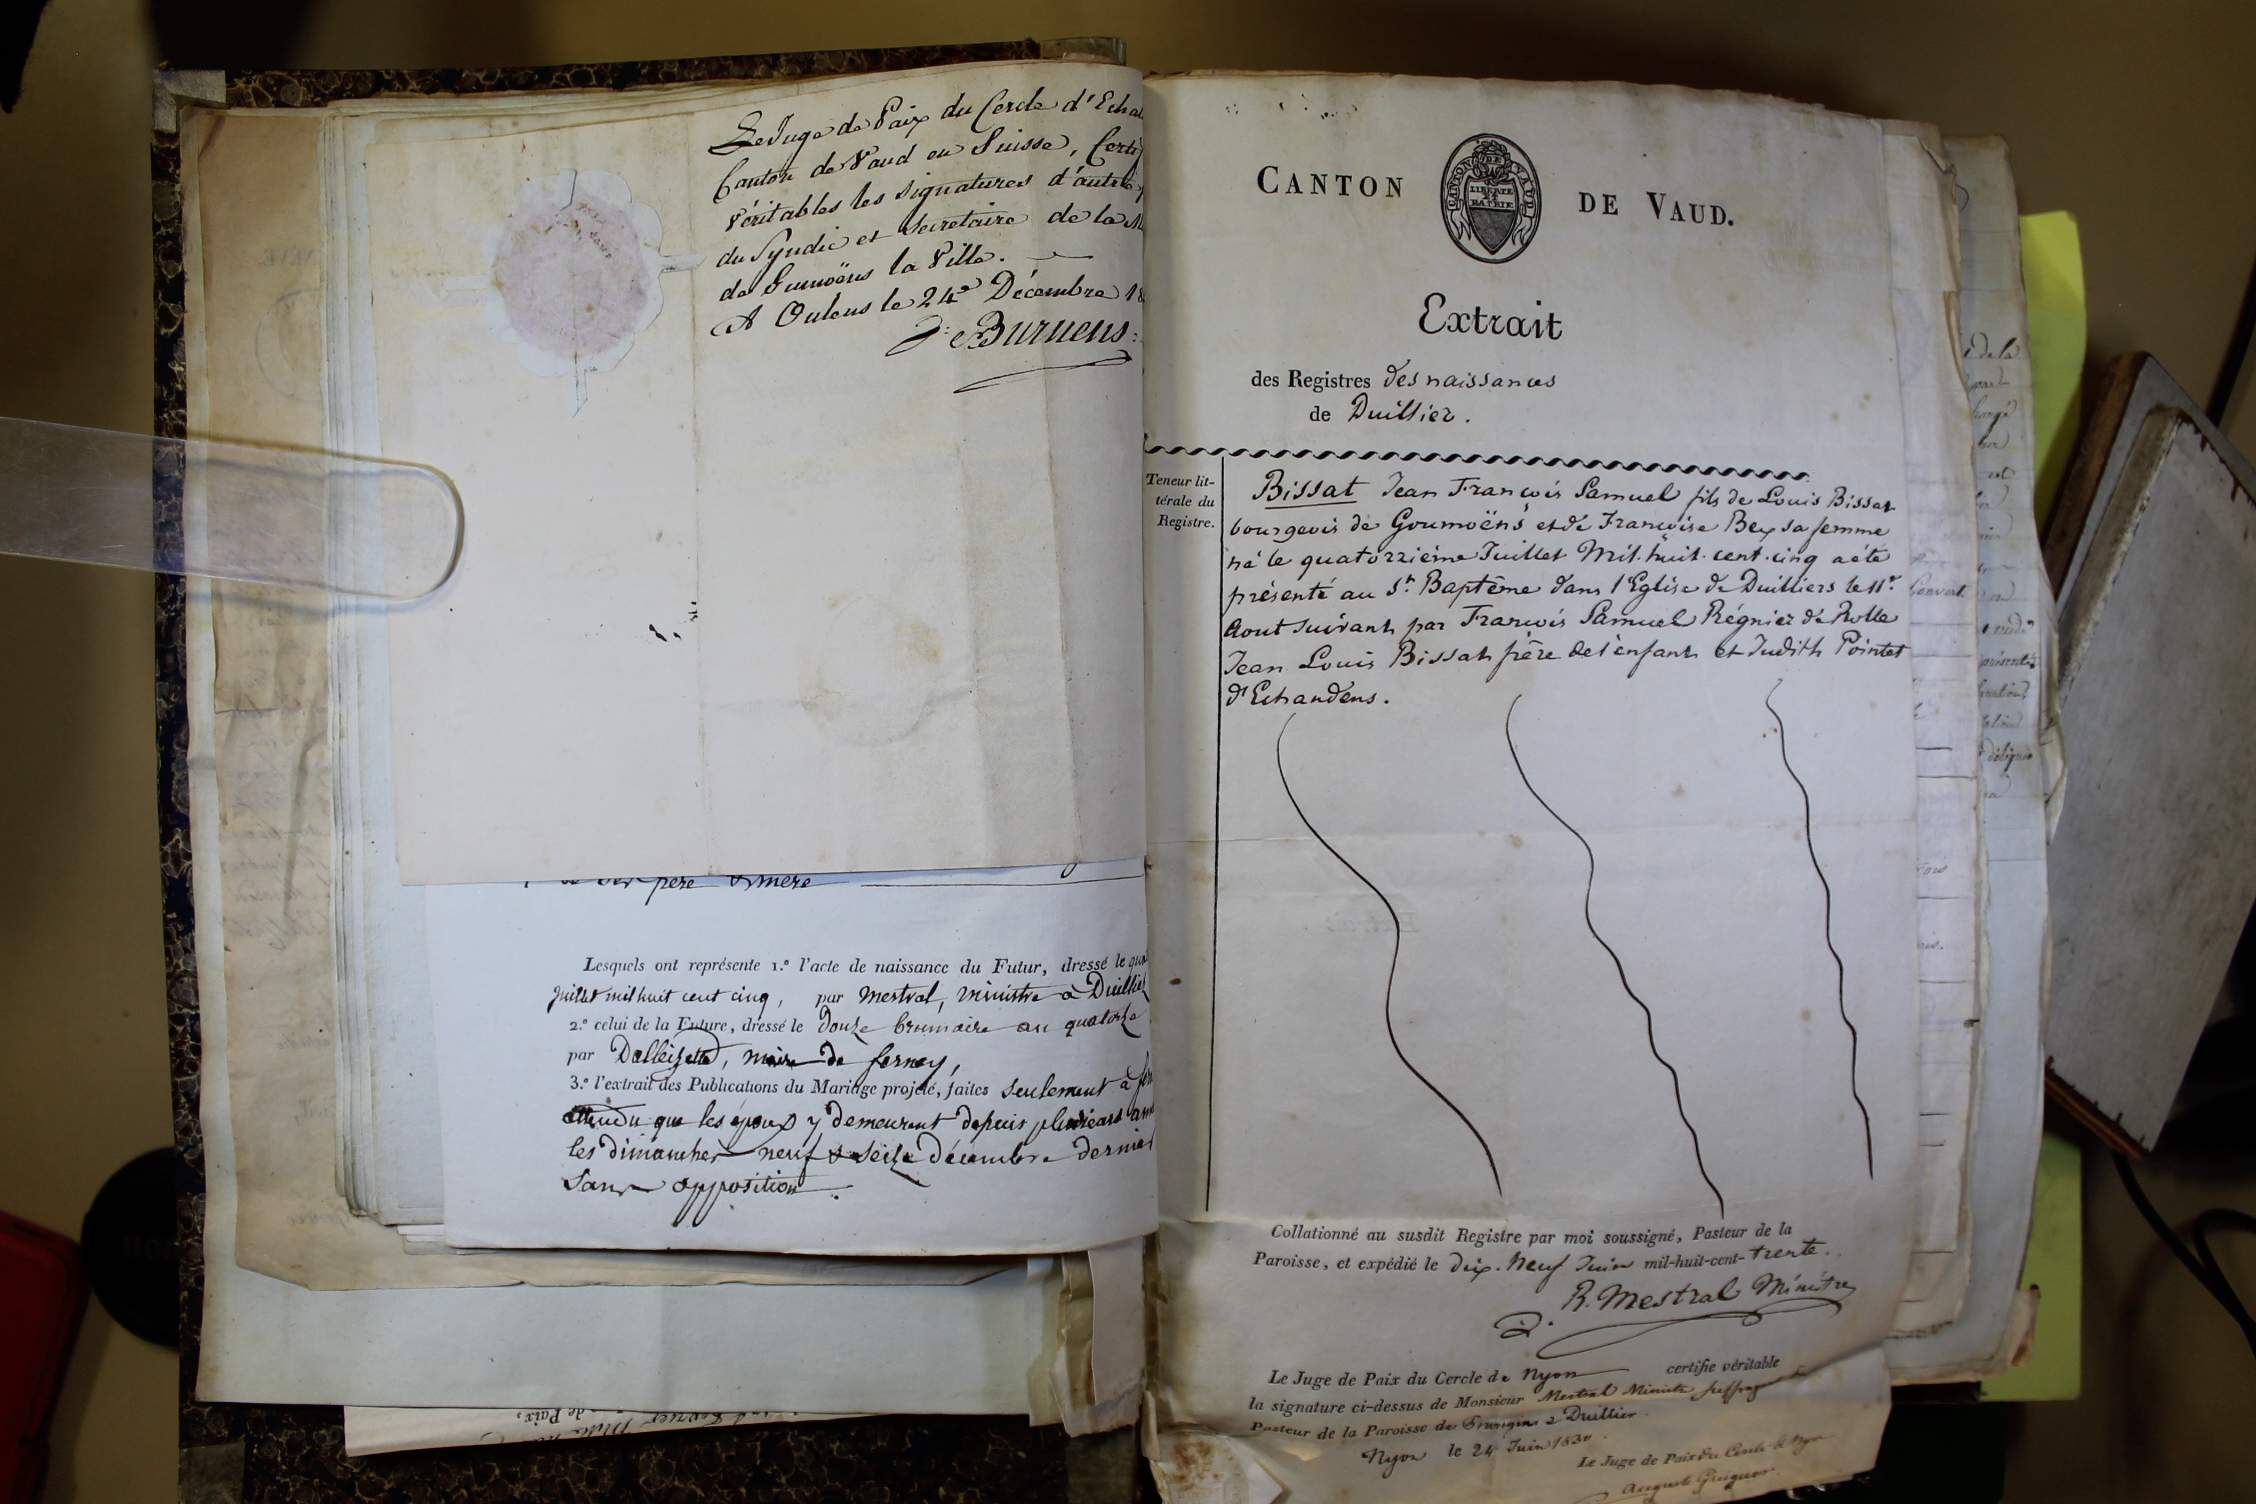 Le Juge de Paix du Cercle d'Echal
Canton de Vaud en Suisse, Certi
véritables les signatures d'autre
du Syndic et secretaire de la M
de Gumoëns la Ville.
A Oulens le 24e Décembre 18
Burnens
père & mère
Lesquels ont représente 1.º l'acte de naissance du Futur, dressé le qua
juillet mil huit cent cinq, par mestral, ministre à Duillier
2.º celui de la Future, dressé le douze brumaire an quatorze
par maire de ferney,
3.º l'extrait des Publications du Mariage projeté, faites seulement à fer
attendu que les époux y demeurent depuis plusieurs ann
les dimanches neuf & seize décembre dernier
sans opposition.
CANTON DE VAUD.
CANTON DE VAUD
LIBERTÉ ET PATRIE
Extrait
des Registres des naissances
de Duillier.
Teneur lit-
térale du
Registre.
Bissat Jean François Samuel fils de Louis Bissat
bourgeois de Goumoëns et de Françoise Bex sa femme
né le quatorzième Juillet Mil. huit. cent. cinq a été
présenté au St. Baptême dans l'Eglise de Duilliers le 11e.
Aout suivant par François Samuel Régnier de Rolle
Jean Louis Bissat frère de l'enfant et Judith Pointet
d'Echandens.
Collationné au susdit Registre par moi soussigné, Pasteur de la
Paroisse, et expédié le dix. Neuf Juin mil-huit-cent-trente.
R. Mestral Ministre
Le Juge de Paix du Cercle de Nyon certifie véritable
la signature ci-dessus de Monsieur Mestral Ministre suffragant
Pasteur de la Paroisse de & Duillier
Nyon le 24 Juin 1830
Le Juge de Paix du Cercle de Nyon
Auguste